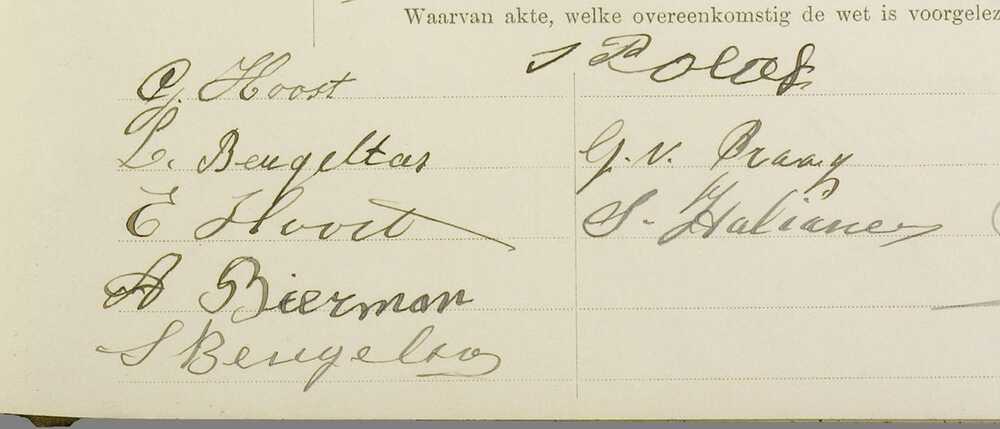 Waarvan akte, welke overeenkomstig de wet is voorgelez
J Polak
G. Hoost
L. Beugeltas
G. v. Praag
E Hoost
S. Italianer
A Bierman
S Beugeltas